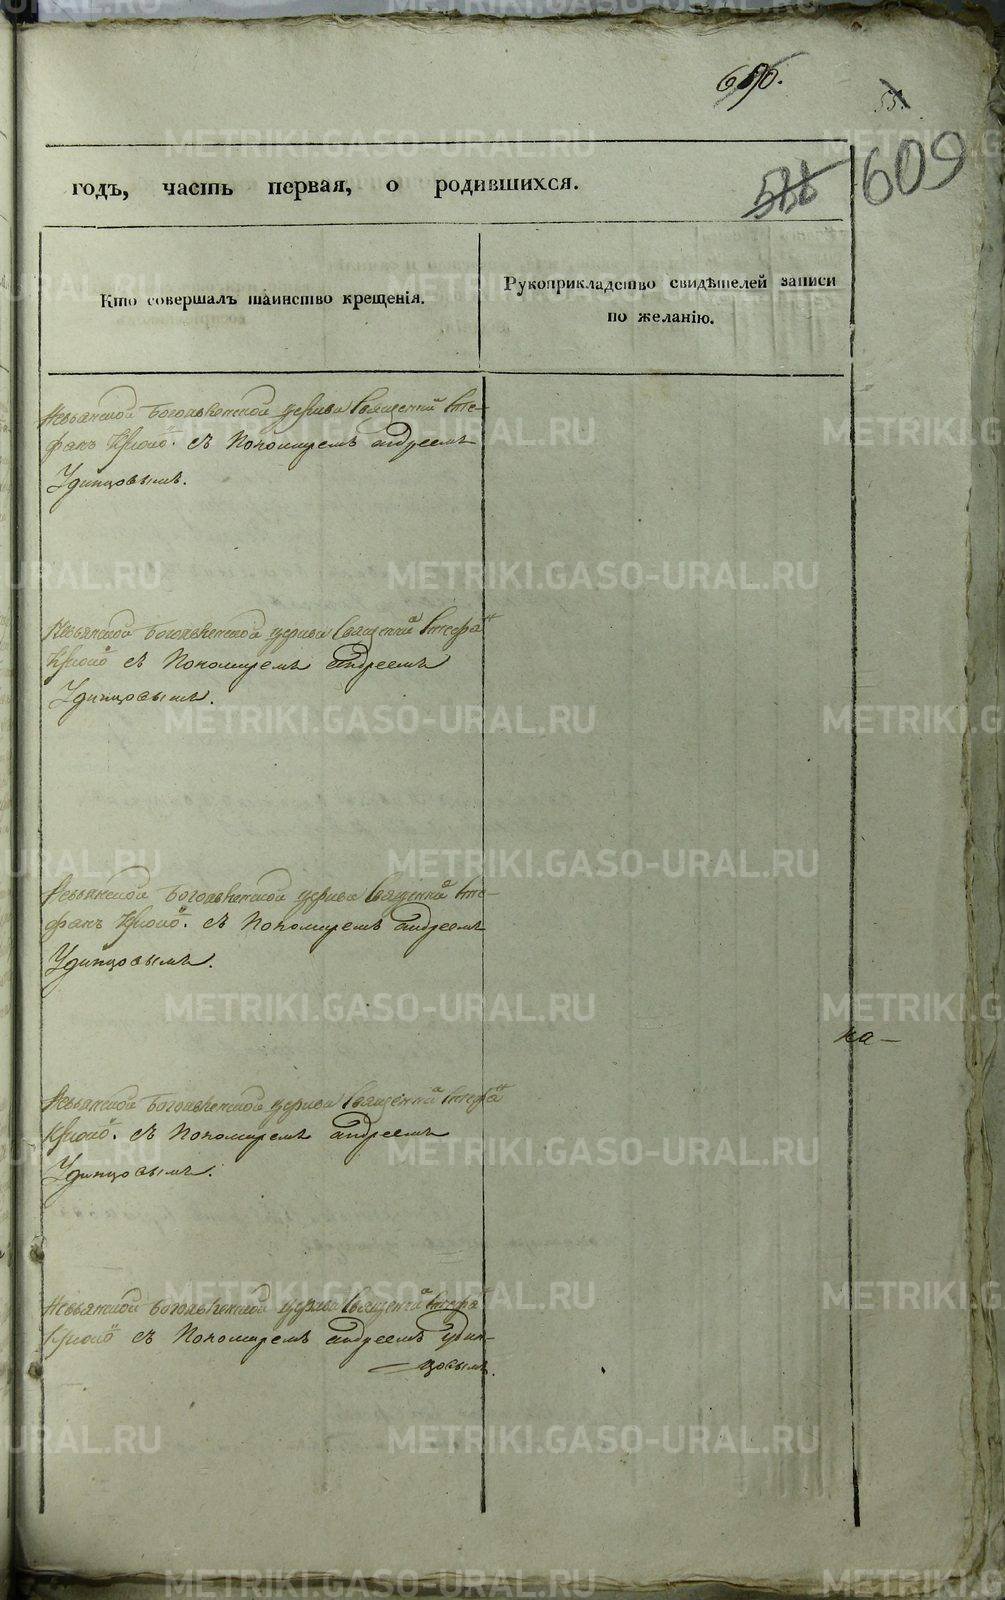 690.
55.
609
годъ, часть первая, о родившихся.
Кто совершалъ таинство крещенія.
Рукоприкладство свидѣтелей записи
по желанію.
Невьянской Богоявленской церкви Священни Сте-
фанъ с Пономаремъ Андреемъ
Удинцовымъ.
Невьянской Богоявленской церкви Священни Стефа
с Пономаремъ Андреемъ
Удинцовымъ.
Невьянской Богоявленской церкви Священни Сте-
фанъ с Пономаремъ Андреемъ
Удинцовымъ.
Невьянской Богоявленской церкви Священни Стефа
с Пономаремъ Андреемъ
Удинцовымъ.
Невьянской Богоявленской церкви Священни Стефа
с Пономаремъ Андреемъ Удин-
цовымъ.
на —
METRIKI.GASO-URAL.RU